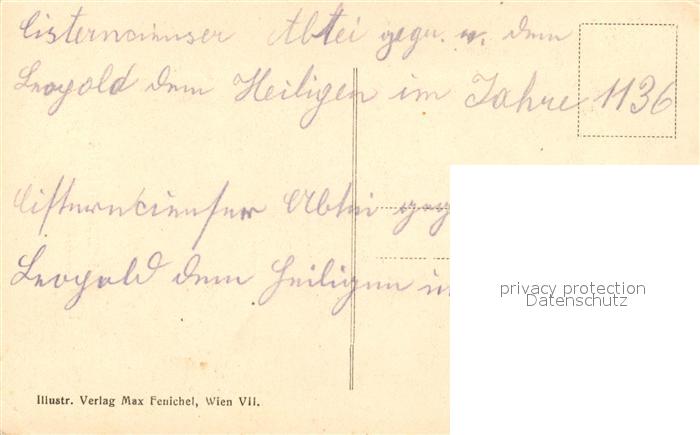 Cisterncienser Abtei gegr. v. dem
Leopold dem Heiligen im Jahre 1136
Cisterncienser Abtei geg
Leopold dem Heiligen i
privacy protection
Datenschutz
Illustr. Verlag Max Fenichel, Wien VII.